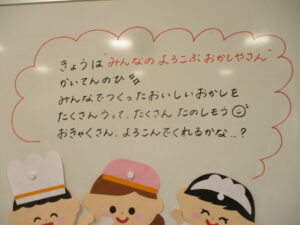 きょうは"みんなの よろこぶ おかしやさん"
かいてんのひ
みんなでつくった おいしい おかしを
たくさん うって、たくさん たのしもう
おきゃくさん、よろこんでくれるかな…?